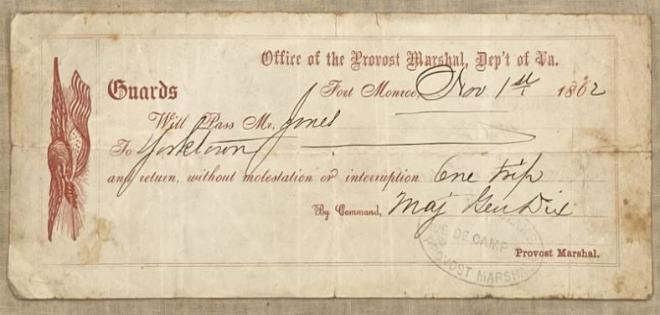 Office of the Provost Marshal, Dep't of Va.
Fort Monroe, Nov 1st 1862
Guards
Will Pass Mr. Jones
To Yorktown
and return, without molestation or interruption One trip
By Command, Maj Gen Dix
DE CAMP
PROVOST MARSHAL
Provost Marshal.